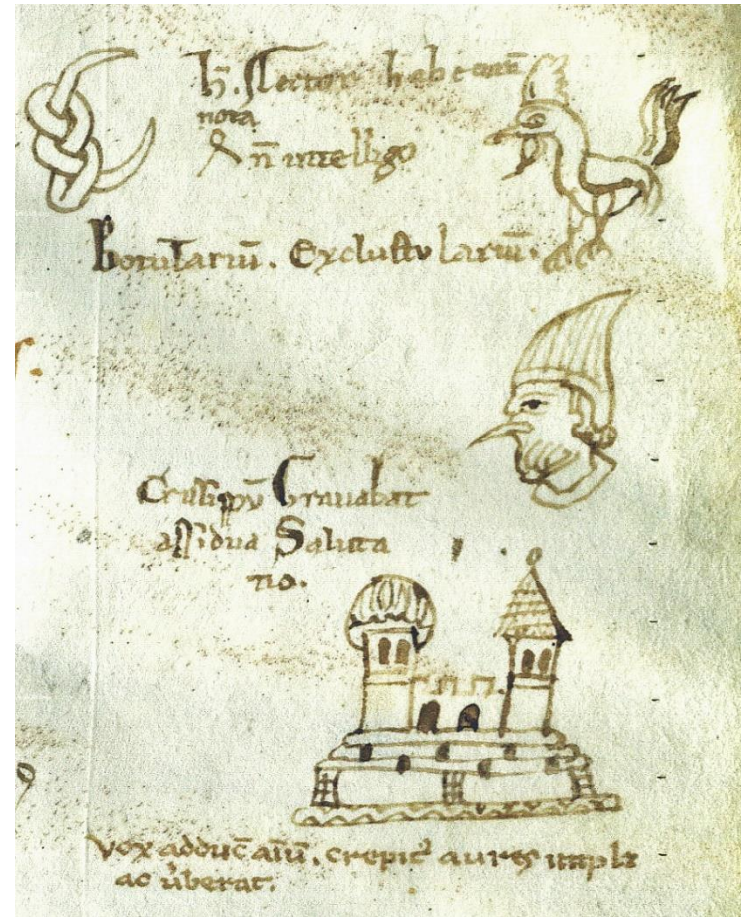 h̄. Lector
nota
n̄ intelligo
Botulariū. Exclustulariū.
Crisippū Gravabat
assidua Saluta
tio.
vox adduc̄ aīū. crepit᾽ aures implet
ac ūberat.